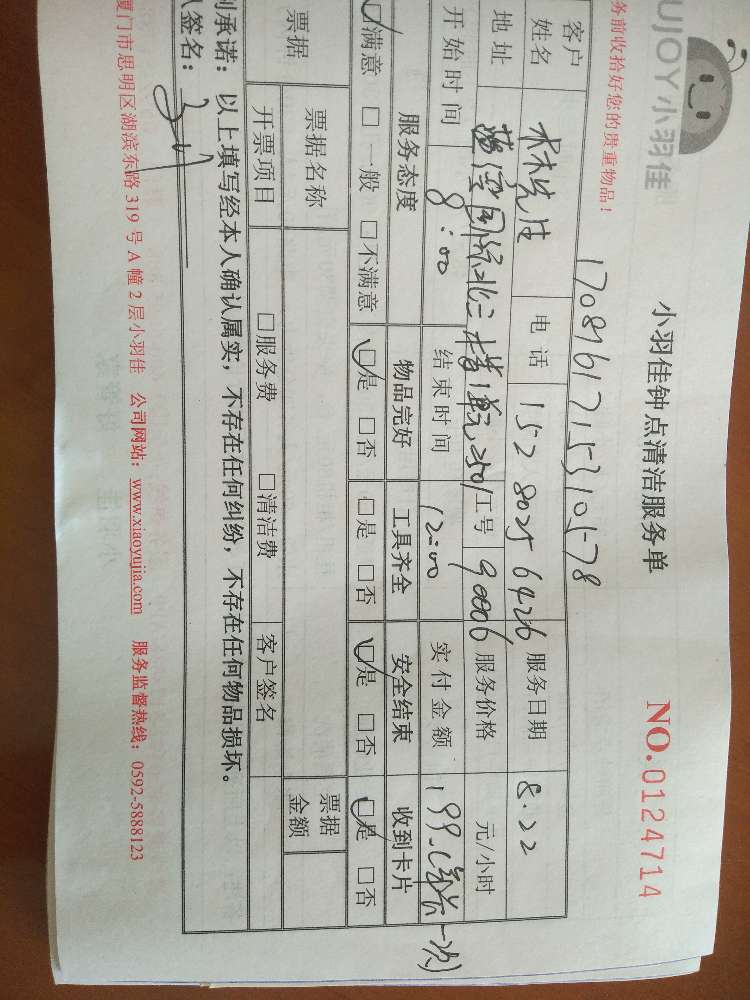 UJOY小羽佳
小羽佳钟点清洁服务单
NO.0124714
务前收拾好您的贵重物品！
1708161715310578
客户姓名 林先生 电话 152 8025 6426 服务日期 8.22
地址 国际北二楼1单元2501 工号 90006 服务价格 元/小时
开始时间 8:00 结束时间 12:00 实付金额 199
服务态度 物品完好 工具齐全 安全结束 收到卡片
☑满意 □一般 □不满意 ☑是 □否 □是 □否 ☑是 □否 ☑是 □否
票据 票据名称 票据金额
开票项目 □服务费 □清洁费 客户签名
承诺：以上填写经本人确认属实，不存在任何纠纷，不存在任何物品损坏。
签名：
厦门市思明区湖滨东路319号A幢2层小羽佳 公司网站：www.xiaoyujia.com 服务监督热线：0592-5888123